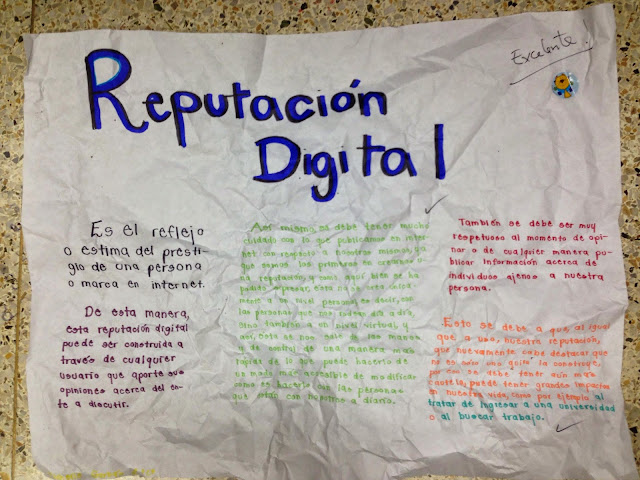 Excelente!
Reputación
Digital
Es el reflejo
o estima del presti-
gio de una persona
o marca en internet.
De esta manera,
esta reputación digital
puede ser construida a
través de cualquier
usuario que aporte sus
opiniones acerca del en-
te a discutir.
Así mismo, se debe tener mucho
cuidado con lo que publicamos en inter-
net con respecto a nosotros mismos, ya
que somos los primeros en crearnos u-
na reputación y como aquí bien se ha
podido expresar, esta no se crea sola
mente a un nivel personal, es decir, con
las personas que nos rodean día a día,
sino también a un nivel virtual, y
aún, esto se nos sale de las manos
y de control de una manera más
rápida de lo que puede hacerlo de
un modo más accesible de modificar
como es hacerlo con las personas
que están con nosotros a diario.
También se debe ser muy
respetuoso al momento de opi-
nar o de cualquier manera pu-
blicar información acerca de
individuos ajenos a nuestra
persona.
Esto se debe a que, al igual
que a uno, nuestra reputación,
que nuevamente cabe destacar que
no es sólo uno quién la construye,
con se debe tener aún más
cautela, puede tener grandes impactos
en nuestra vida, como por ejemplo al
tratar de ingresar a una universidad
o al buscar trabajo.